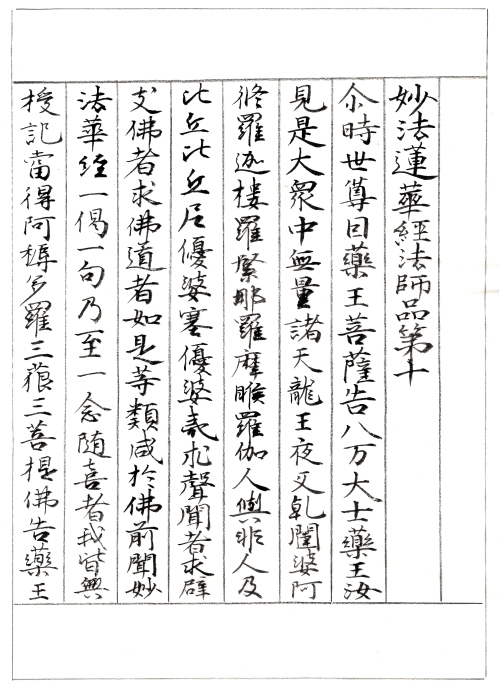 妙法蓮華經法師品第十
尒時世尊因藥王菩薩告八万大士藥王汝
見是大衆中無量諸天龍王夜叉乹闥婆阿
脩羅迦樓羅緊那羅摩睺羅伽人與非人及
比丘比丘尼優婆塞優婆夷求聲聞者求辟
支佛者求佛道者如是等類咸於佛前聞妙
法華經一偈一句乃至一念随喜者我皆與
授記當得阿耨多羅三藐三菩提佛告藥王